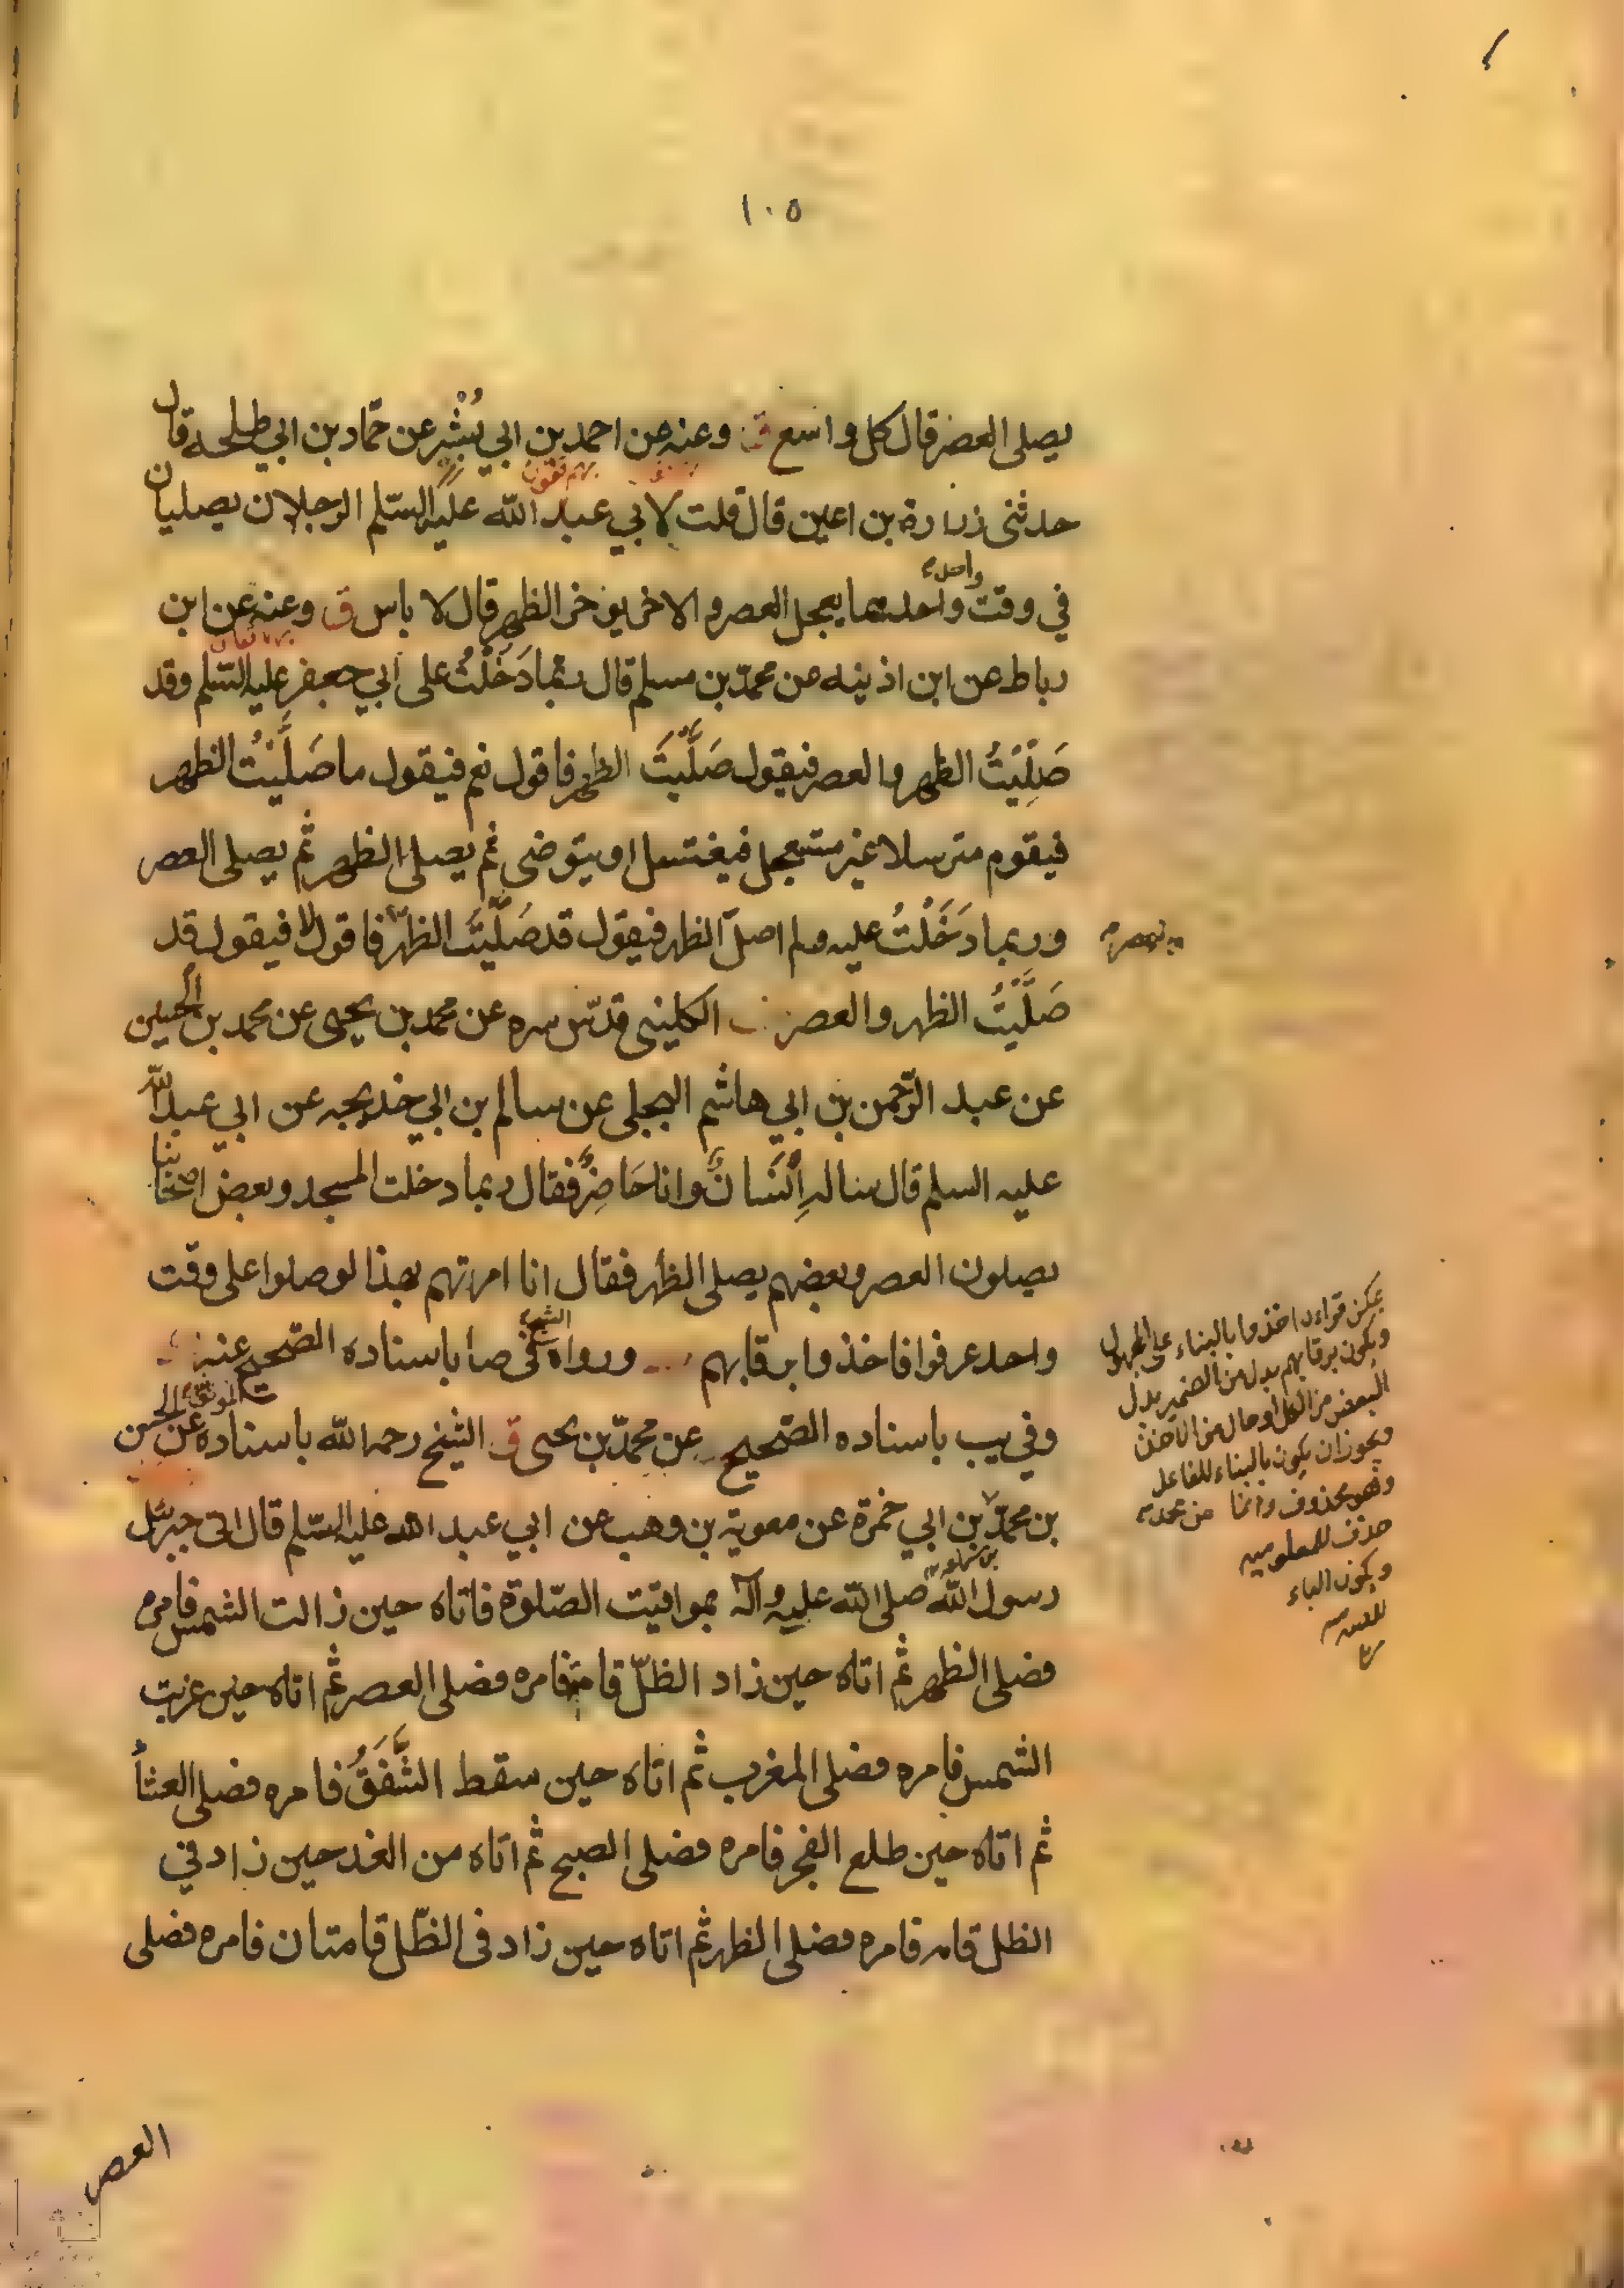 ١٠٥
يصلى العصر قال كل واسع ق وعنه عن احمد بن ابي بُشْر عن حمّاد بن ابي طلحة قال
حدثنى زرارة بن اعين قال قلت لابي عبد الله عليه السّلم الرجلان يصليان
في وقت واحد واحدهما يعجل العصر والاخر يؤخر الظهر قال لا باس ق وعنه عن ابن
رباط عن ابن اذينه عن محمّد بن مسلم قال ربّما دَخَلْتُ على ابي جعفر عليه السّلم وقد
صَلَّيْتُ الظهر والعصر فيقول صَلَّيْتَ الظهر فاقول نعم فيقول ما صَلَّيْتُ الظهر
فيقوم مترسلا غير مستعجل فيغتسل او يتوضى ثم يصلى الظهر ثم يصلى العصر
وربما دَخَلْتُ عليه ولم اصلّ الظهر فيقول قد صَلَّيْتَ الظهر فاقول لا فيقول قد
صَلَّيْتُ الظهر والعصر الكلينى قدّس سره عن محمد بن يحيى عن محمد بن الحسين
عن عبد الرّحمن بن ابي هاشم البجلى عن سالم بن ابي خديجه عن ابي عبد الله
عليه السلم قال ساله اِنْسَانٌ وانا حَاضِرٌ فقال ربما دخلت المسجد وبعض اصحابنا
يصلون العصر وبعضهم يصلى الظهر فقال انا امرتهم بهذا لو صلوا على وقت
واحد عرفوا فاخذوا برقابهم ورواه الشيخ في صا باسناده الصّحيح عنه
وفي يب باسناده الصّحيح عن محمّد بن يحيى ق الشيخ رحمه الله باسناده الموثق عن الحسن
بن محمّد بن سماعه عن ابي حمزة عن معوية بن وهب عن ابي عبد الله عليه السّلم قال اتى جبرئيل
رسول الله صلى الله عليه وآله بمواقيت الصّلوة فاتاه حين زالت الشمس فامره
فصلى الظهر ثم اتاه حين زاد الظلّ قامة فامره فصلى العصر ثم اتاه حين غربت
الشمس فامره فصلى المغرب ثم اتاه حين سقط الشَّفَقُ فامره فصلى العشأ
ثم اتاه حين طلع الفجر فامره فصلى الصبح ثم اتاه من الغد حين زاد في
الظل قامه فامره فصلى الظهر ثم اتاه حين زاد فى الظّل قامتان فامره فصلى
العصر
يمكن قراءة اخذوا بالبناء على المجهول
ويكون برقابهم بدل من الضمير بدل
البعض من الكل او حال من الآخذ
ويجوز ان يكون بالبناء للفاعل
وهو محذوف وانما
حذف للمعلوميه
ويكون الباء